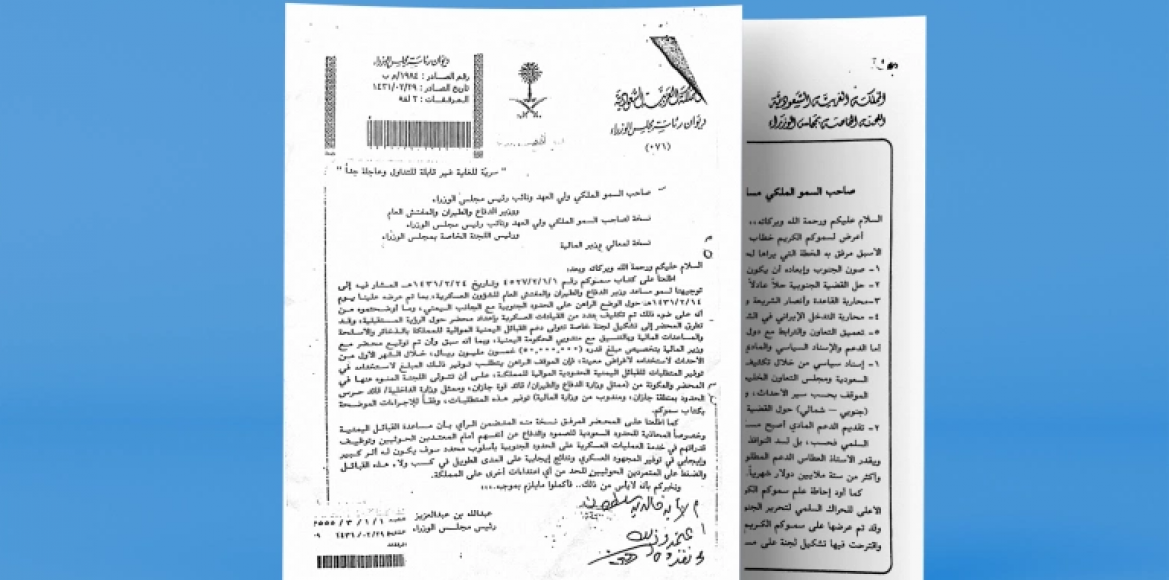 ديوان رئاسة مجلس الوزراء
رقم الصادر : ١٩٨٤/م ب
تاريخ الصادر : ١٤٣١/٠٢/٢٩
المرفقات : ٢ لفة
المملكة العربية السعودية
ديوان رئاسة مجلس الوزراء
(٠٧١)
" سرية للغاية غير قابلة للتداول وعاجلة جداً "
صاحب السمو الملكي ولي العهد ونائب رئيس مجلس الوزراء
ووزير الدفاع والطيران والمفتش العام
نسخة لصاحب السمو الملكي ولي العهد ونائب رئيس مجلس الوزراء
ورئيس اللجنة الخاصة بمجلس الوزراء
نسخة لمعالي وزير المالية
السلام عليكم ورحمة الله وبركاته وبعد:
اطلعنا على كتاب سموكم رقم ٤٥٢٧/٢/١/١ وتاريخ ١٤٣١/٢/٢٤هـ المشار فيه إلى
توجيهنا لسمو مساعد وزير الدفاع والطيران والمفتش العام للشؤون العسكرية، بما تم عرضه علينا يوم
١٤٣١/٢/١٤هـ حول الوضع الراهن على الحدود الجنوبية مع الجانب اليمني، وما أوضحتموه من
أنه على ضوء ذلك تم تكليف عدد من القيادات العسكرية بإعداد محضر حول الرؤية المستقبلية، وقد
تطرق المحضر إلى تشكيل لجنة خاصة تتولى دعم القبائل اليمنية الموالية للمملكة بالذخائر والأسلحة
والمساعدات المالية وبالتنسيق مع مندوبي الحكومة اليمنية، وبما أنه سبق وأن تم توقيع محضر مع
وزير المالية بتخصيص مبلغ قدره (٥٠,٠٠٠,٠٠٠) خمسون مليون ريال، خلال الشهر الأول من
الأحداث لاستخدامه لأغراض معينة، فإن الموقف الراهن يتطلب توفير ذلك المبلغ لاستخدامه في
توفير المتطلبات للقبائل اليمنية الحدودية الموالية للمملكة، على أن تتولى اللجنة المنوه عنها في
المحضر والمكونة من (ممثل وزارة الدفاع والطيران/ قائد قوة جازان، وممثل وزارة الداخلية/ قائد حرس
الحدود بمنطقة جازان، ومندوب من وزارة المالية) توفير هذه المتطلبات، وفقاً للإجراءات الموضحة
بكتاب سموكم.
كما اطلعنا على المحضر المرفق نسخة منه المتضمن الرأي بأن مساعدة القبائل اليمنية
وخصوصاً المحاذية للحدود السعودية للصمود والدفاع عن أنفسهم أمام المعتدين الحوثيين وتوظيف
قدراتهم في خدمة العمليات العسكرية على الحدود الجنوبية بأسلوب محدد سوف يكون له أثر كبير
وإيجابي في توفير المجهود العسكري ونتائج إيجابية على المدى الطويل في كسب ولاء هذه القبائل
والضغط على المتمردين الحوثيين للحد من أي اعتداءات أخرى على المملكة.
ونخبركم بأنه لابأس من ذلك.. فأكملوا مايلزم بموجبه،،،
عبدالله بن عبدالعزيز
رئيس مجلس الوزراء
١٤٣١/٠٢/٢٩
المملكة العربية السعودية
اللجنة الخاصة بمجلس الوزراء
صاحب السمو الملكي
السلام عليكم ورحمة الله وبركاته،،
أعرض لسموكم الكريم خطاب
الأسبق مرفق به الخطة التي يراها
١- صون الجنوب وإبعاده أن يكون
٢- حل القضية الجنوبية حلاً عادلاً
٣- محاربة القاعدة وأنصار الشريعة و
٤- محاربة التدخل الإيراني في
٥- تعميق التعاون والترابط مع دول
إما الدعم والإسناد السياسي والمادي
١- إسناد سياسي من خلال تكثيف
السعودية ومجلس التعاون
الموقف بحسب سير الأحداث، و
(جنوبي – شمالي) حول القضية
٢- تقديم الدعم المادي أصبح
السلمي فحسب، بل لسد النوافذ
ويقدر الاستاذ العطاس الدعم
وأكثر من ستة ملايين دولار شهرياً.
كما أود إحاطة علم سموكم
الاعلى للحراك السلمي لتحرير
وقد تم عرضها على سموكم الكريم
واقترحت فيها تشكيل لجنة على